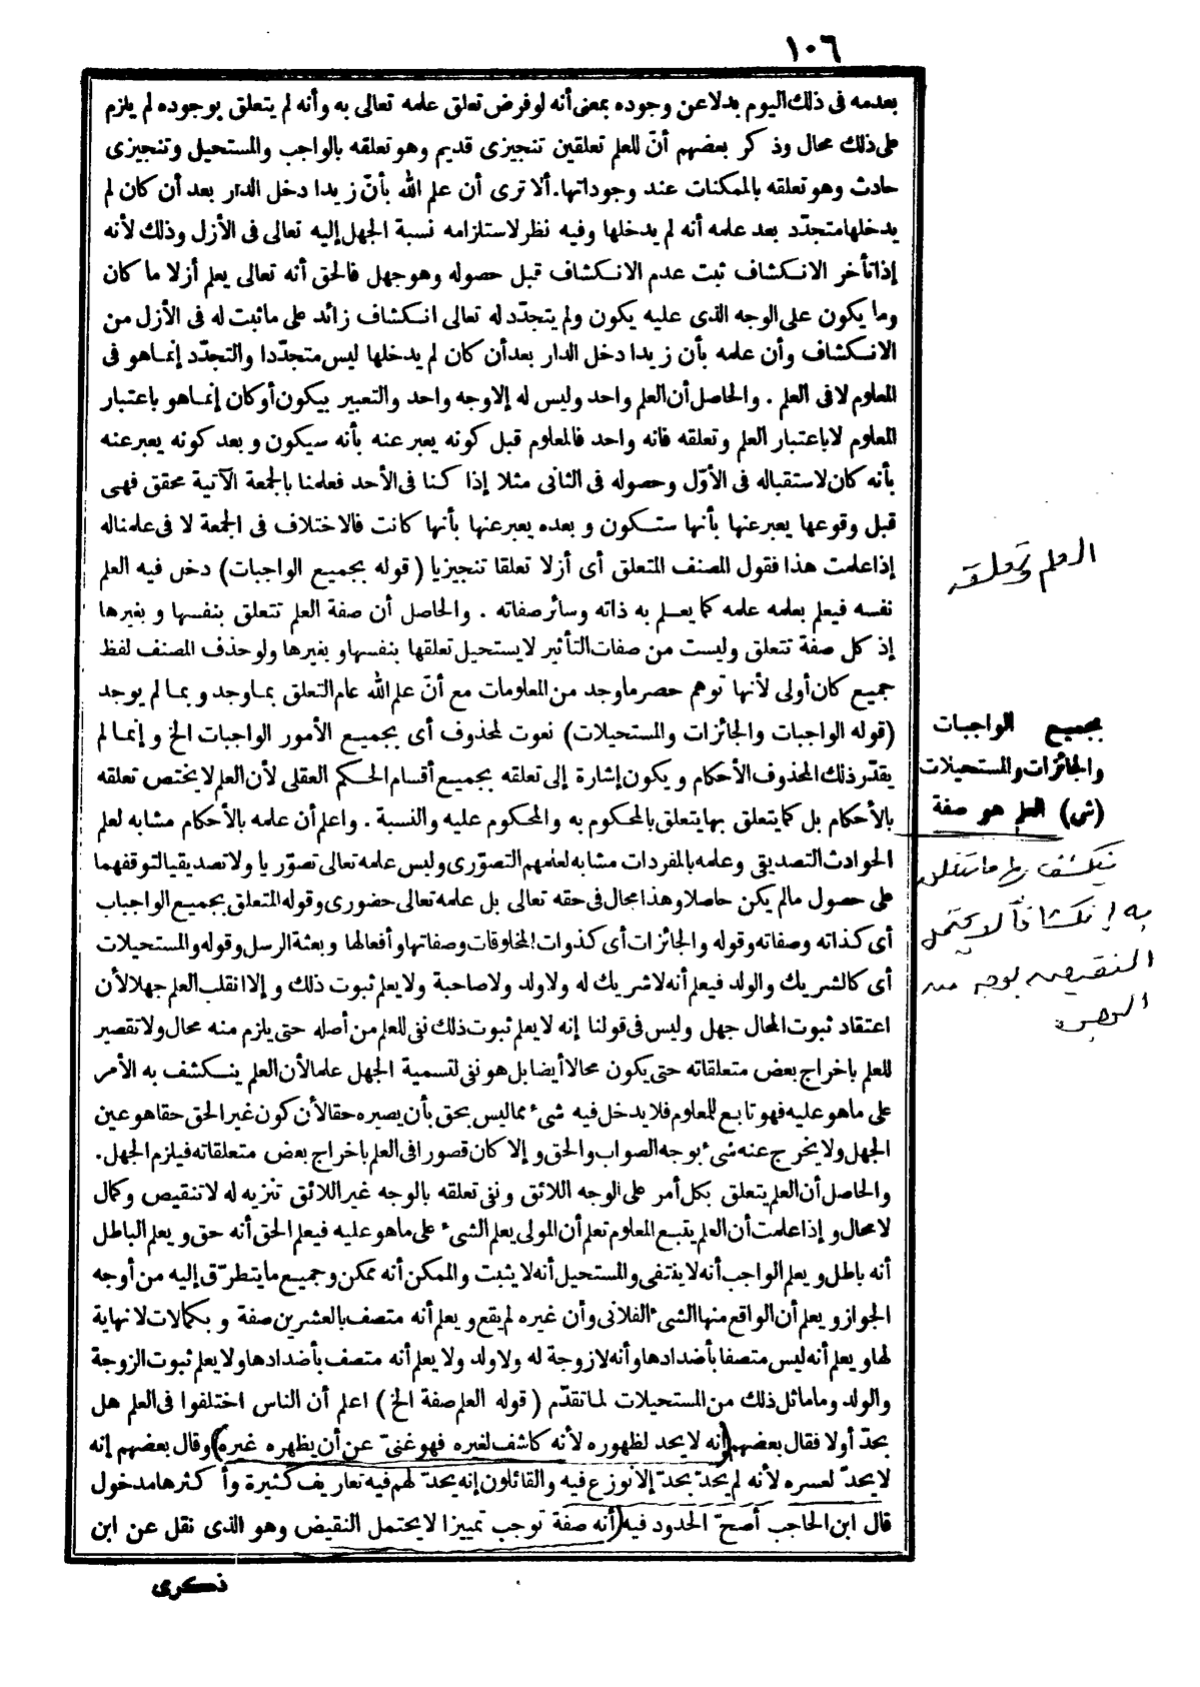 ١٠٦
بعدمه فى ذلك اليوم بدلا عن وجوده بمعنى أنه لو فرض تعلق علمه تعالى به وأنه لم يتعلق بوجوده لم يلزم
على ذلك محال وذكر بعضهم أنّ للعلم تعلقين تنجيزى قديم وهو تعلقه بالواجب والمستحيل وتنجيزى
حادث وهو تعلقه بالممكنات عند وجوداتها. ألا ترى أن علم الله بأنّ زيدا دخل الدار بعد أن كان لم
يدخلها متجدّد بعد علمه أنه لم يدخلها وفيه نظر لاستلزامه نسبة الجهل إليه تعالى فى الأزل وذلك لأنه
إذا تأخر الانكشاف ثبت عدم الانكشاف قبل حصوله وهو جهل فالحق أنه تعالى يعلم أزلا ما كان
وما يكون على الوجه الذى عليه يكون ولم يتجدّد له تعالى انكشاف زائد على ما ثبت له فى الأزل من
الانكشاف وأن علمه بأن زيدا دخل الدار بعد أن كان لم يدخلها ليس متجدّدا والتجدّد إنما هو فى
المعلوم لا فى العلم . والحاصل أن العلم واحد وليس له إلا وجه واحد والتعبير بيكون أو كان إنما هو باعتبار
المعلوم لا باعتبار العلم وتعلقه فانه واحد فالمعلوم قبل كونه يعبر عنه بأنه سيكون وبعد كونه يعبر عنه
بأنه كان لاستقباله فى الأوّل وحصوله فى الثانى مثلا إذا كنا فى الأحد فعلمنا بالجمعة الآتية محقق فهى
قبل وقوعها يعبر عنها بأنها ستكون وبعده يعبر عنها بأنها كانت فالاختلاف فى الجمعة لا فى علمنا له
إذا علمت هذا فقول المصنف المتعلق أى أزلا تعلقا تنجيزيا (قوله بجميع الواجبات) دخل فيه العلم
نفسه فيعلم بعلمه علمه كما يعلم به ذاته وسائر صفاته . والحاصل أن صفة العلم تتعلق بنفسها وبغيرها
إذ كل صفة تتعلق وليست من صفات التأثير لا يستحيل تعلقها بنفسها وبغيرها ولو حذف المصنف لفظ
جميع كان أولى لأنها توهم حصر ما وجد من المعلومات مع أنّ علم الله عام التعلق بما وجد وبما لم يوجد
(قوله الواجبات والجائزات والمستحيلات) نعوت لمحذوف أى بجميع الأمور الواجبات الخ وإنما لم
يقدّر ذلك المحذوف الأحكام ويكون إشارة إلى تعلقه بجميع أقسام الحكم العقلى لأن العلم لا يختص تعلقه
بالأحكام بل كما يتعلق بها يتعلق بالمحكوم به والمحكوم عليه والنسبة . واعلم أن علمه بالأحكام مشابه لعلم
الحوادث التصديقى وعلمه بالمفردات مشابه لعلمهم التصوّرى وليس علمه تعالى تصوّريا ولا تصديقيا لتوقفهما
على حصول ما لم يكن حاصلا وهذا محال فى حقه تعالى بل علمه تعالى حضورى وقوله المتعلق بجميع الواجبات
أى كذاته وصفاته وقوله والجائزات أى كذوات المخلوقات وصفاتها وأفعالها وبعثة الرسل وقوله والمستحيلات
أى كالشريك والولد فيعلم أنه لا شريك له ولا ولد ولا صاحبة ولا يعلم ثبوت ذلك وإلا انقلب العلم جهلا لأن
اعتقاد ثبوت المحال جهل وليس فى قولنا إنه لا يعلم ثبوت ذلك نفى للعلم من أصله حتى يلزم منه محال ولا تقصير
للعلم باخراج بعض متعلقاته حتى يكون محالا أيضا بل هو نفى لتسمية الجهل علما لأن العلم ينكشف به الأمر
على ما هو عليه فهو تابع للمعلوم فلا يدخل فيه شىء مما ليس بحق بأن يصيره حقا لأن كون غير الحق حقا هو عين
الجهل ولا يخرج عنه شىء بوجه الصواب والحق وإلا كان قصورا فى العلم باخراج بعض متعلقاته فيلزم الجهل.
والحاصل أن العلم يتعلق بكل أمر على الوجه اللائق ونفى تعلقه بالوجه غير اللائق تنزيه له لا تنقيص وكمال
لا محال وإذا علمت أن العلم يتبع المعلوم تعلم أن المولى يعلم الشىء على ما هو عليه فيعلم الحق أنه حق ويعلم الباطل
أنه باطل ويعلم الواجب أنه لا ينتفى والمستحيل أنه لا يثبت والممكن أنه ممكن وجميع ما يتطرّق إليه من أوجه
الجواز ويعلم أن الواقع منها الشىء الفلانى وأن غيره لم يقع ويعلم أنه متصف بالعشرين صفة وبكمالات لا نهاية
لها ويعلم أنه ليس متصفا بأضدادها وأنه لا زوجة له ولا ولد ولا يعلم أنه متصف بأضدادها ولا يعلم ثبوت الزوجة
والولد وما ماثل ذلك من المستحيلات لما تقدّم (قوله العلم صفة الخ) اعلم أن الناس اختلفوا فى العلم هل
يحدّ أولا فقال بعضهم (إنه لا يحد لظهوره لأنه كاشف لغيره فهو غنىّ عن أن يظهره غيره) وقال بعضهم إنه
لا يحدّ لعسره لأنه لم يحدّ بحدّ إلا نوزع فيه والقائلون إنه يحدّ لهم فيه تعاريف كثيرة وأكثرها مدخول
قال ابن الحاجب أصحّ الحدود فيه (أنه صفة توجب تمييزا لا يحتمل النقيض وهو الذى نقل عن ابن
ذكرى
العلم وتعلقه
بجميع الواجبات
والجائزات والمستحيلات
(ش) العلم هو صفة
ينكشف بها ما تتعلق
به انكشافاً لا يحتمل
النقيض بوجه من
الوجوه